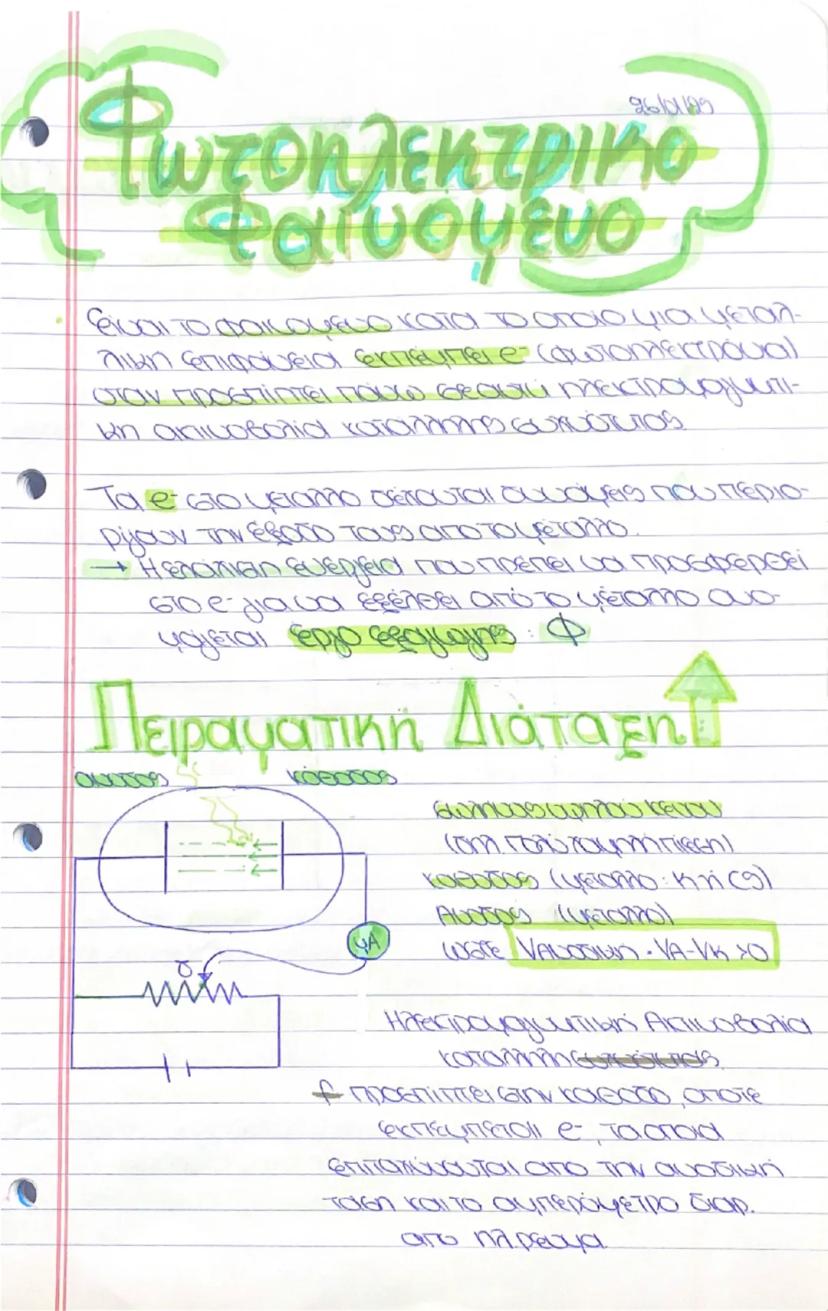 26/01/23
Φωτοηλεκτρικο
Φαινομενο
Είναι το φαινομενο κατα το οποιο μια μεταλ-
λικη επιφάνεια εκπέμπει e⁻ (φωτοηλεκτρόνια)
όταν προσπίπτει πάνω σε αυτή ηλεκτρομαγνητι-
κη ακτινοβολία κατάλληλης συχνότητας
Τα e⁻ στο μεταλλο δέχονται δυνάμεις που περιο-
ρίζουν την έξοδο τους απο το μέταλλο.
→ Η ελάχιστη ενέργεια που πρέπει να προσφερθεί
στο e⁻ για να εξέλθει από το μέταλλο ονο-
μάζεται έργο εξαγωγης : Φ
Πειραματική Διάταξη
ανοδος καθοδος
σωληνας υψηλού κενου
(δηλ πολύ χαμηλή πίεση)
καθοδος (μέταλλο : Κ ή Cs)
Ανοδος (μέταλλο)
ώστε Vανοδικη = VA-VK >0
μA
δ
Ηλεκτρομαγνητική Ακτινοβολία
καταλληλης συχνότητας
f προσπίπτει στην καθοδο, οποτε
εκπεμπεται e⁻, τα οποια
επιταχύνονται απο την ανοδικη
ταση και το αμπερόμετρο διαρ.
απο ηλ. ρευμα